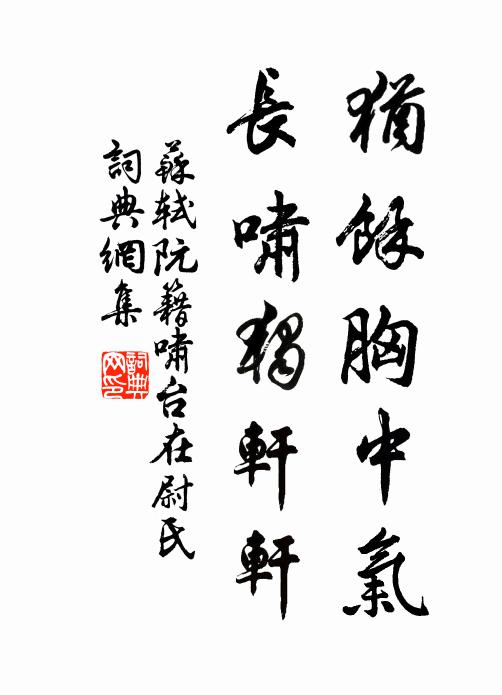 猶餘胸中氣
長嘯獨軒軒
蘇軾阮籍嘯台在尉氏
詞典網集
詞典网印